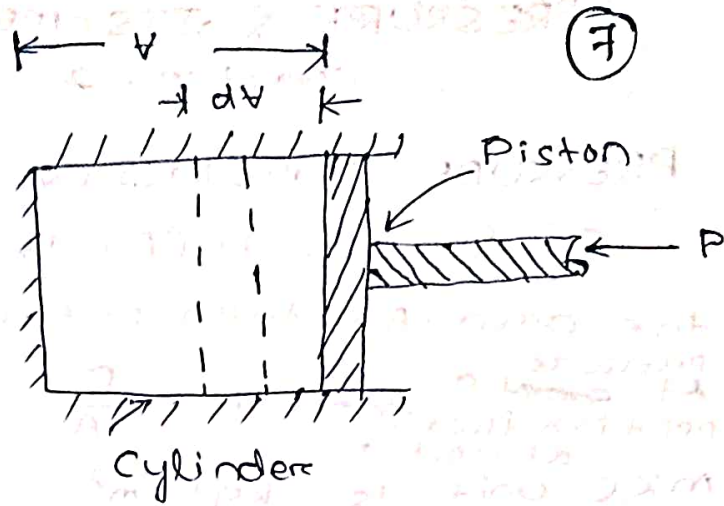 7
∀
d∀
Piston
P
Cylinder